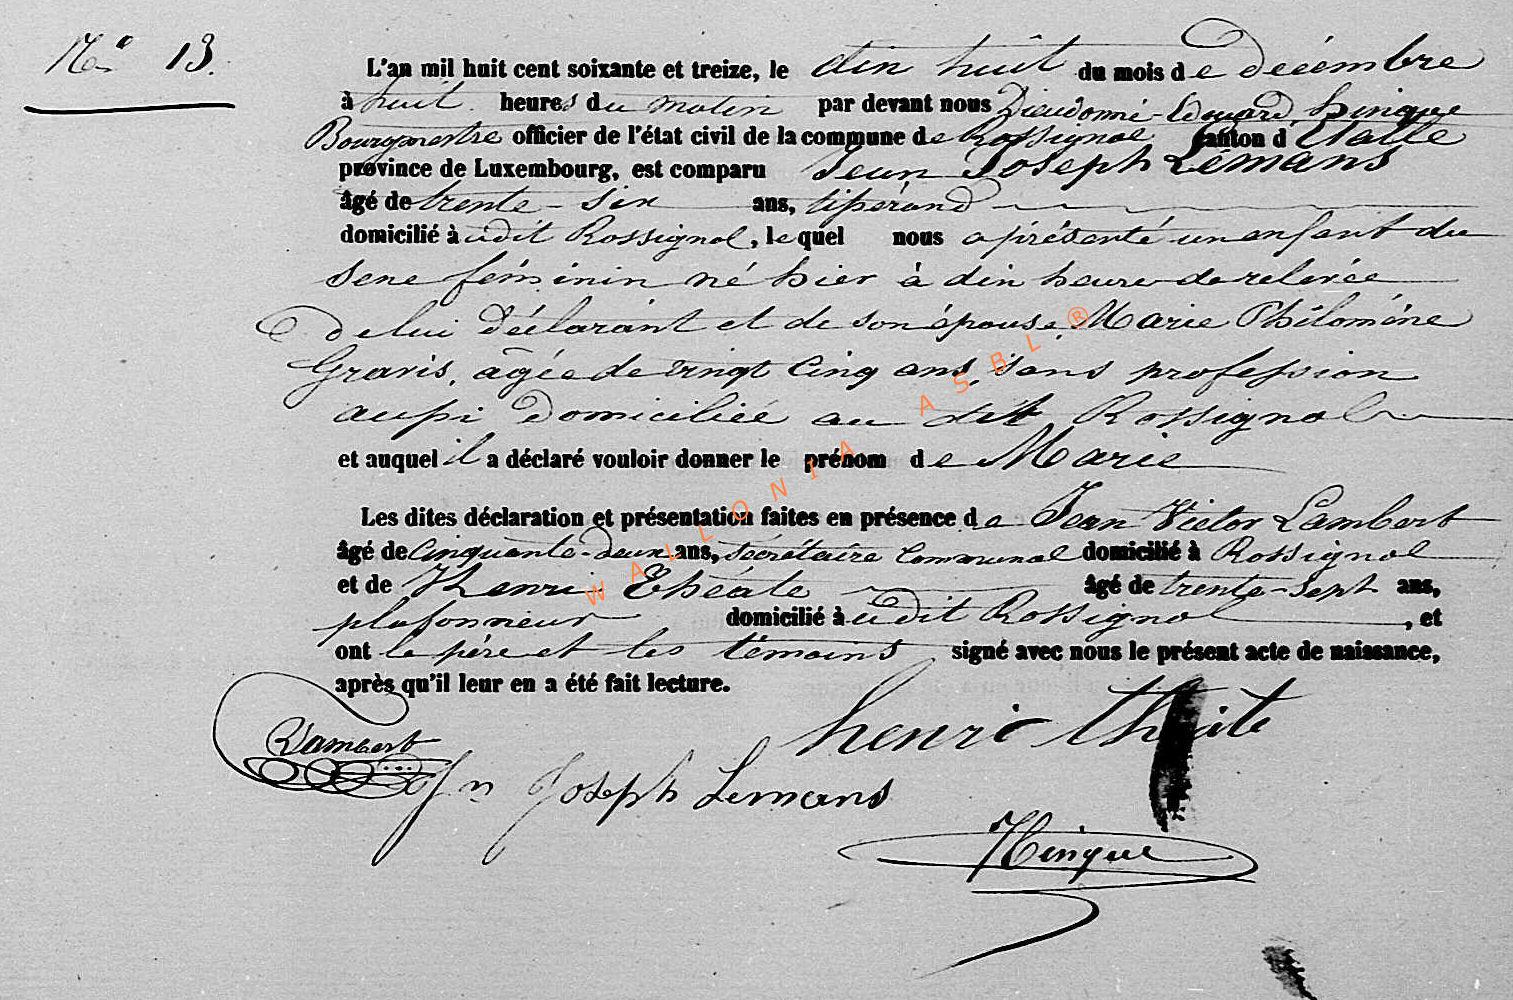 No 13.
L'an mil huit cent soixante et treize, le dix huit du mois de décembre
à huit heures du matin par devant nous Dieudonné Edouard Hinque
Bourgmestre officier de l'état civil de la commune de Rossignol canton d'Etalle
province de Luxembourg, est comparu Jean Joseph Lémans
âgé de trente-six ans, tisserand
domicilié à udit Rossignol, le quel nous a présenté un enfant du
sexe féminin né hier à dix heure de relevée
de lui déclarant et de son épouse Marie Philomène
Gravis, agée de vingt cinq ans, sans profession
aussi domiciliée au dit Rossignol
et auquel il a déclaré vouloir donner le prénom de Marie
Les dites déclaration et présentation faites en présence de Jean Victor Lambert
âgé de Cinquante-deux ans, secrétaire Communal domicilié à Rossignol
et de Henri Théate âgé de trente-sept ans,
plafonneur domicilié à udit Rossignol, et
ont le père et les témoins signé avec nous le présent acte de naissance,
après qu'il leur en a été fait lecture.
henri théate
Lambert
Jn Joseph Lemans
Hinque
WALLONIA ASBL ®